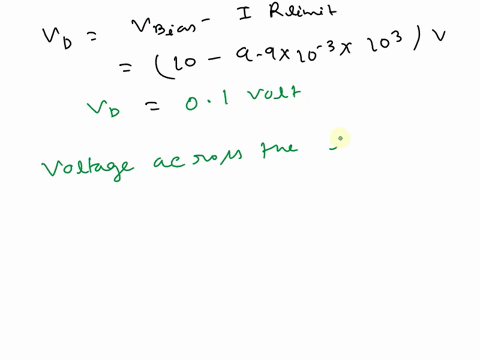 V_D = V_Bias - I Rlimit
= (10 - 9.9×10^-3 × 10^3) V
V_D = 0.1 volt
Voltage across the